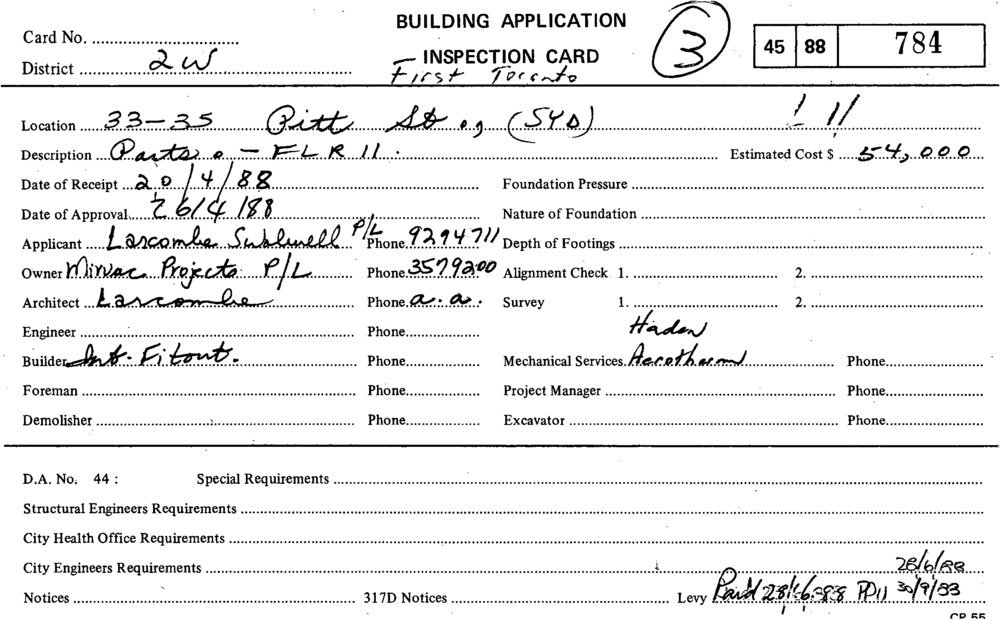 BUILDING APPLICATION
Card No. 3 45 88 784
— INSPECTION CARD
District 2W First Toronto
Location 33-35 Pitt St (SYD) ! 11
Description Parts - FLR 11. Estimated Cost $ 54,000
Date of Receipt 20/4/88 Foundation Pressure
Date of Approval 26/4/88 Nature of Foundation
Applicant Larcombe P/L Phone 9294711 Depth of Footings
Owner Mirvac Projects P/L Phone 3579200 Alignment Check 1. 2.
Architect Larcombe Phone a.a. Survey 1. 2.
Engineer Phone Haden
Builder Int. Fitout. Phone Mechanical Services Aerotherm Phone
Foreman Phone Project Manager Phone
Demolisher Phone Excavator Phone
D.A. No. 44 : Special Requirements
Structural Engineers Requirements
City Health Office Requirements
City Engineers Requirements 28/6/88
Notices 317D Notices Levy Paid 28.6.88 30/9/
CP 55